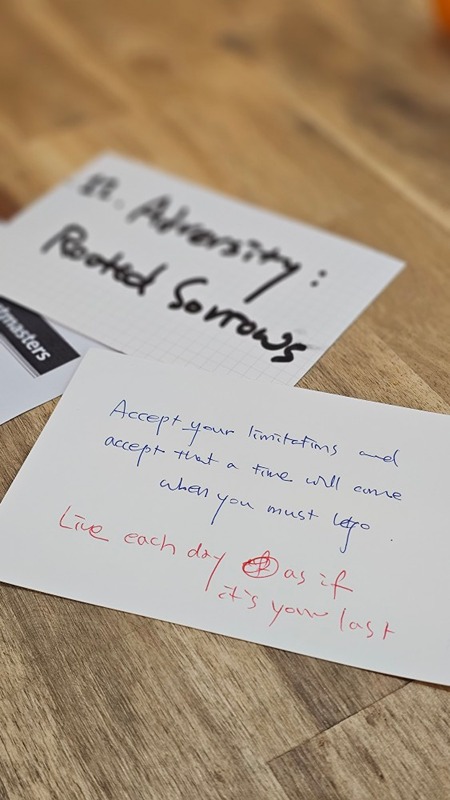 Adversity:
Rooted Sorrows
tmasters
Accept your limitations and
accept that a time will come
when you must let go.
Live each day as if
it's your last